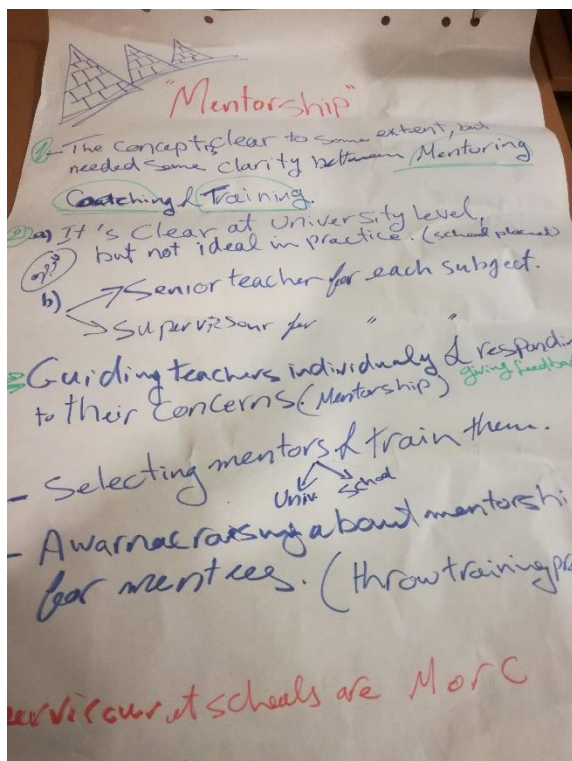 "Mentorship"
- The concept is clear to some extent, but
needed some clarity between Mentoring
Coatching & Training.
a) It's clear at University level,
but not ideal in practice. (school placmet)
b) Senior teacher for each subject.
Supervisour for " "
Guiding teachers individualy & respondin
to their concerns (Mentorship) giving feedbac
- Selecting mentors & train them.
Univ. School
- Awarnac raising about mentorshi
for mentees. (throw training pr
ervisour at schools are M or C